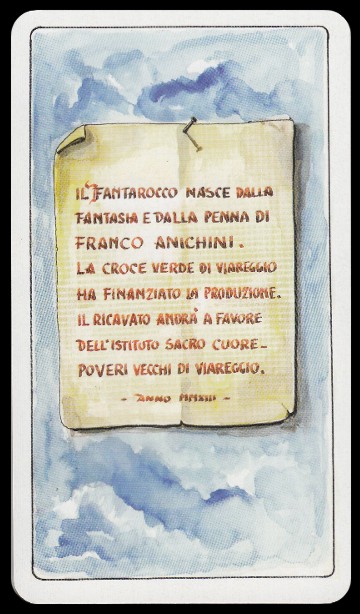 IL FANTAROCCO NASCE DALLA
FANTASIA E DALLA PENNA DI
FRANCO ANICHINI.
LA CROCE VERDE DI VIAREGGIO
HA FINANZIATO LA PRODUZIONE.
IL RICAVATO ANDRÀ A FAVORE
DELL'ISTITUTO SACRO CUORE-
POVERI VECCHI DI VIAREGGIO.
- ANNO MMXIII -